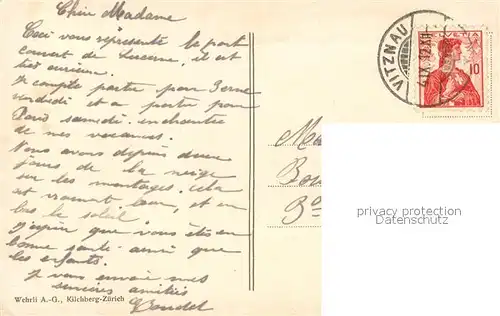 Chère Madame
Ceci vous représente le pont
couvert de Lucerne, il est
très curieux.
Je compte partir pour Berne
vendredi et partir pour
Paris samedi. enchantée
de mes vacances.
Nous avons depuis deux
jours de la neige
sur les montagnes. cela
est vraiment beau, et en
bas le soleil.
J'espère que vous êtes en
bonne santé ainsi que
les enfants.
Je vous envoie mes
sincères amitiés
Wehrli A.-G., Kilchberg-Zürich
VITZNAU
HELVETIA
10
privacy protection
Datenschutz